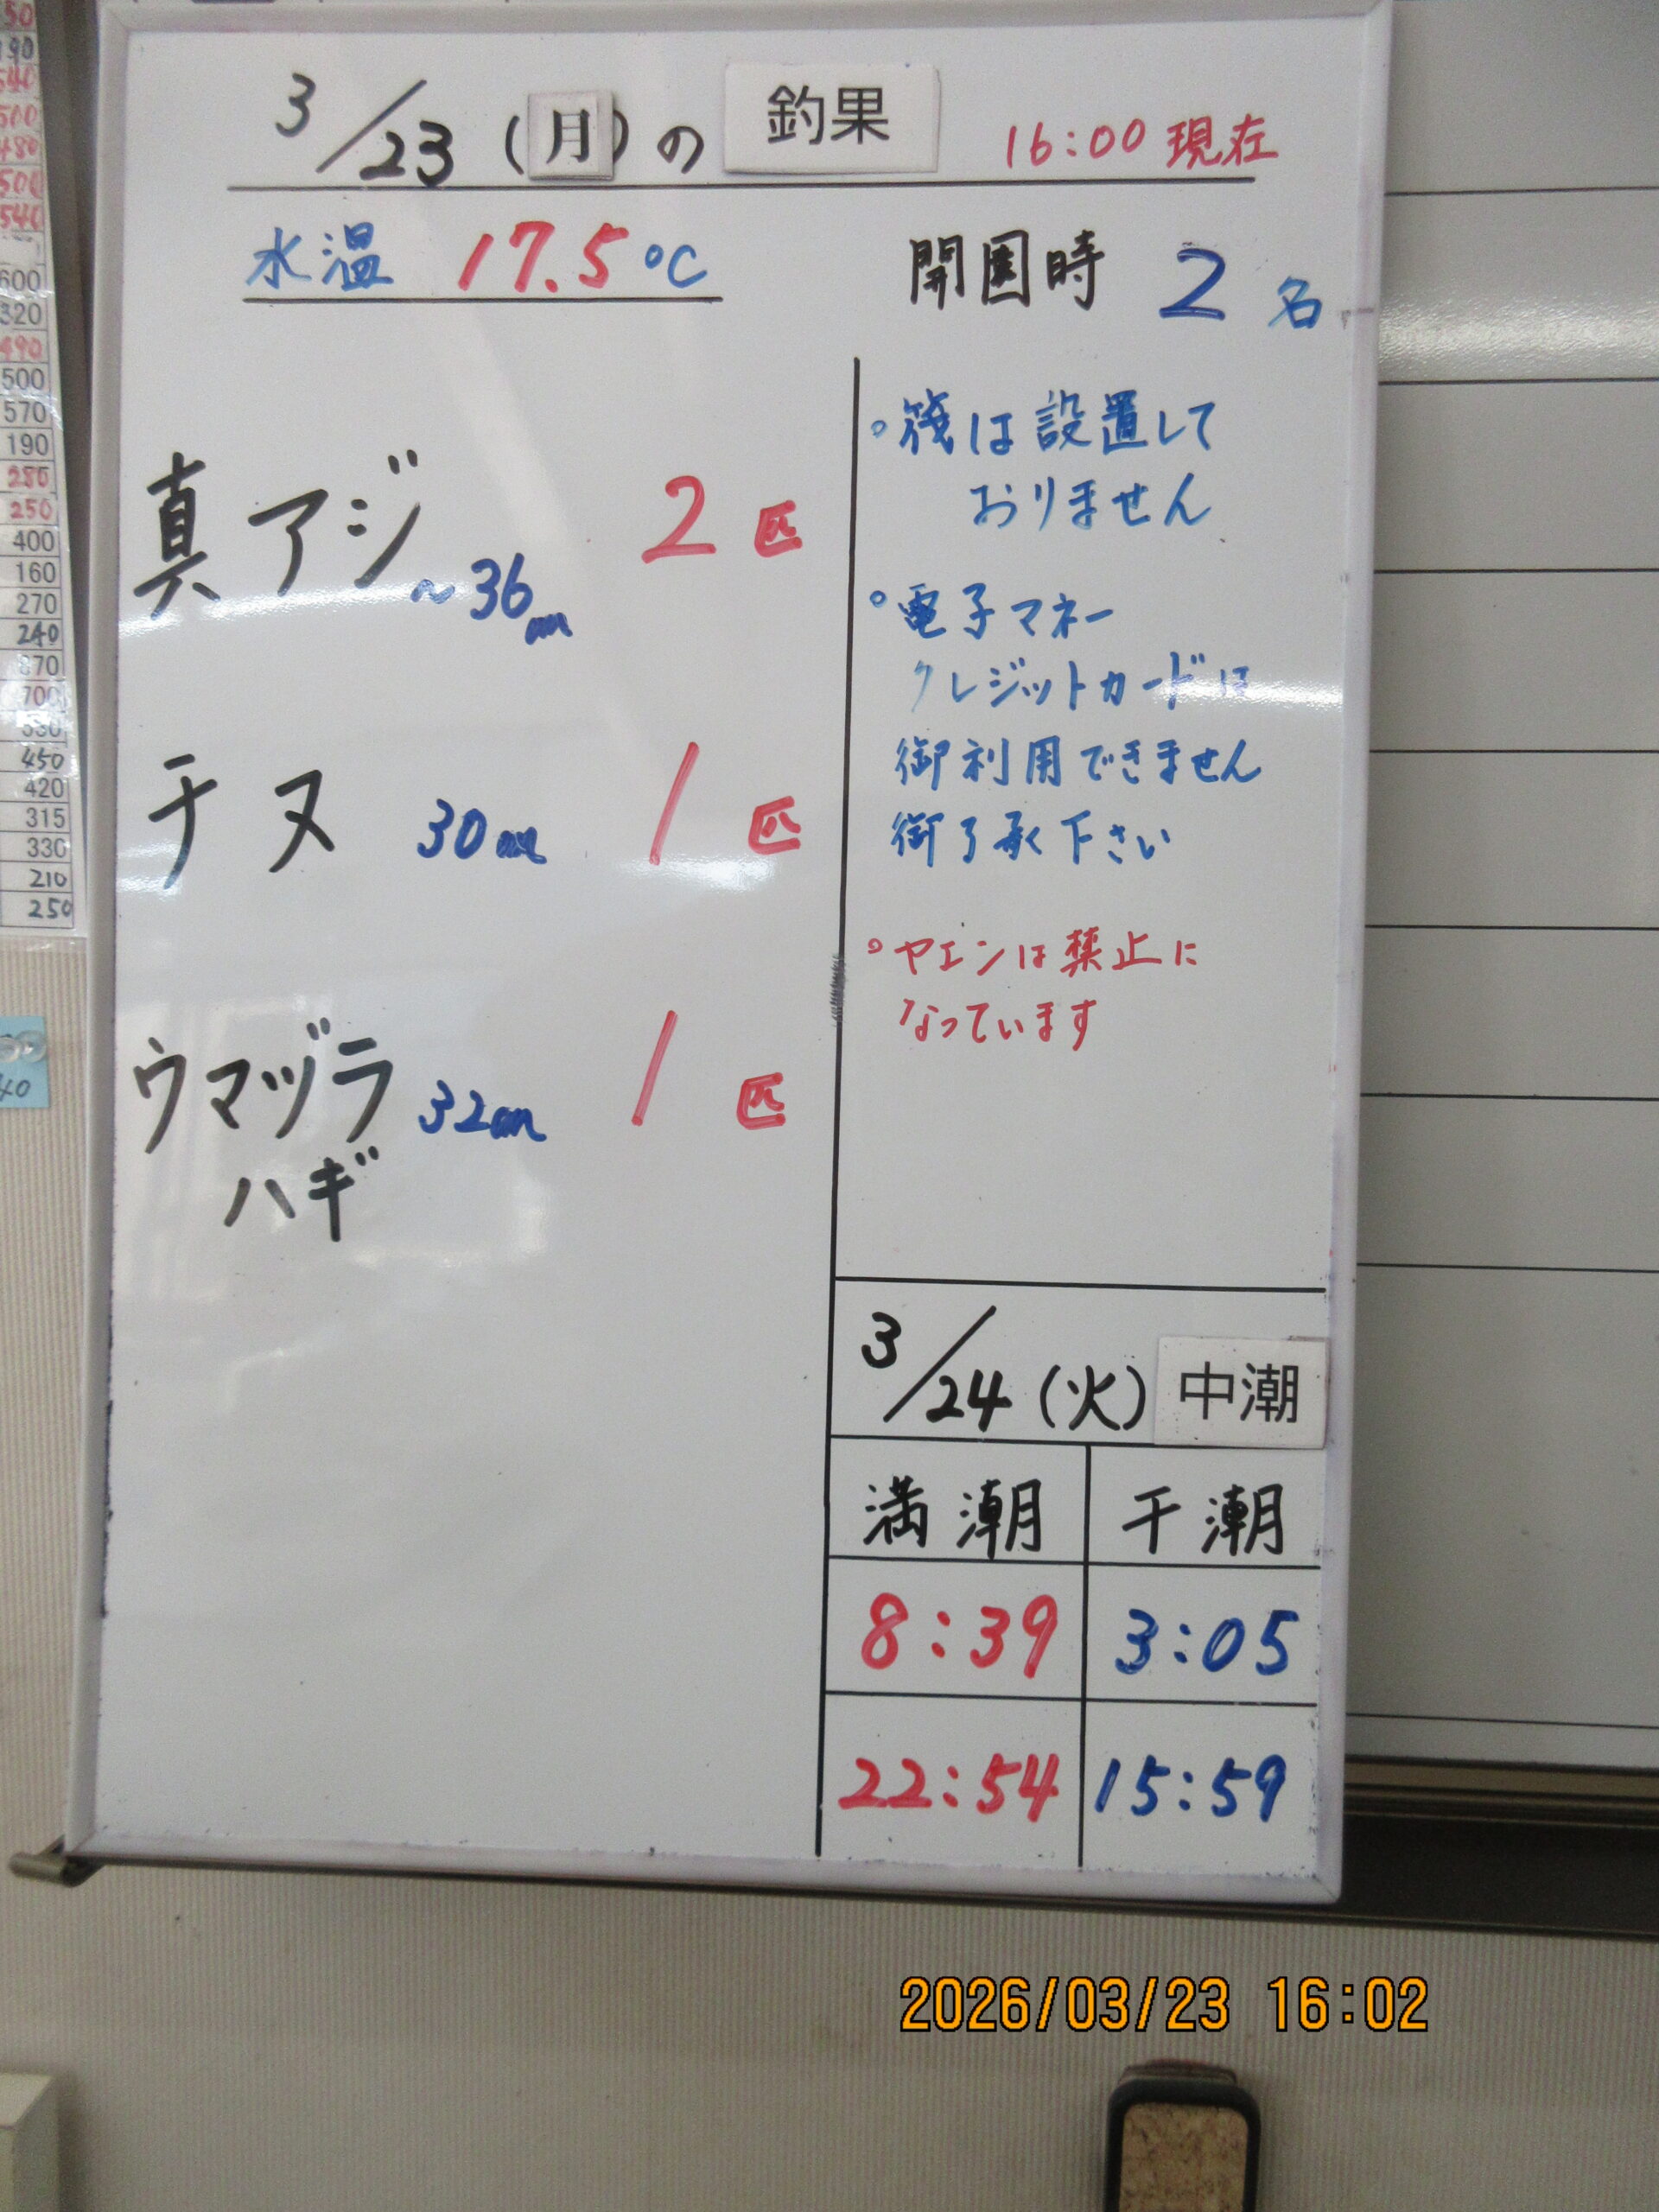 3/23(月)の 釣果 16:00 現在
水温 17.5℃
開園時 2名
真アジ ~36cm 2匹
チヌ 30cm 1匹
ウマヅラ
ハギ 32cm 1匹
。筏は設置して
おりません
。電子マネー
クレジットカードは
御利用できません
御了承下さい
。ヤエンは禁止に
なっています
3/24(火) 中潮
満潮 干潮
8:39 3:05
22:54 15:59
2026/03/23 16:02
500
570
190
280
250
400
160
270
240
870
700
450
420
315
330
210
250